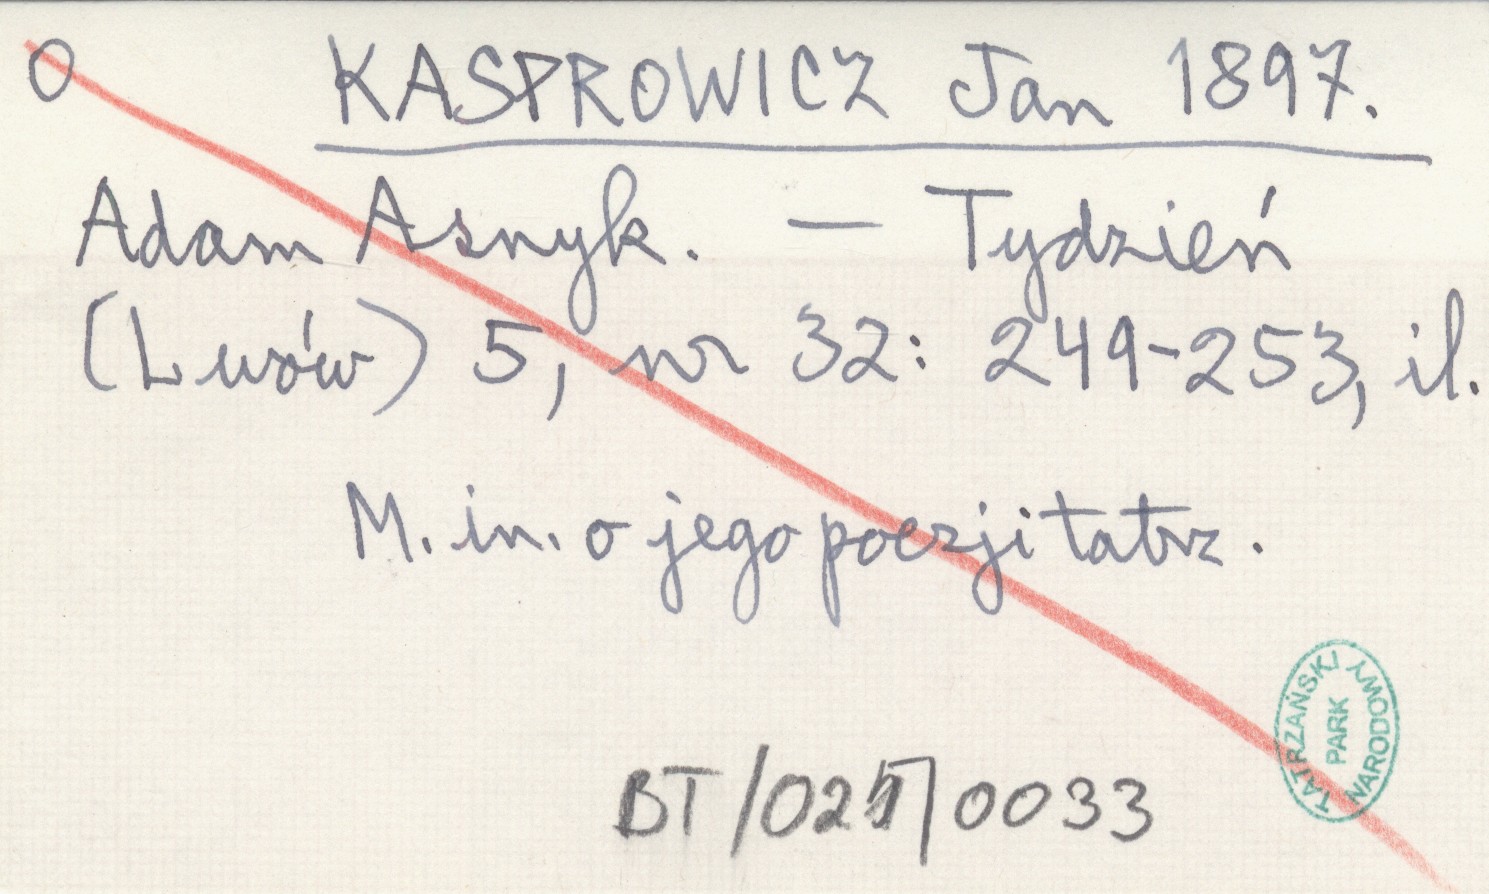 O KASPROWICZ Jan 1897.
Adam Asnyk. — Tydzień
(Lwów) 5, nr 32: 249-253, il.
M. in. o jego poezji tatrz.
TATRZAŃSKI
PARK
NARODOWY